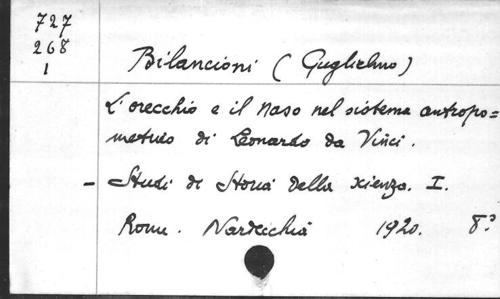 727
268
1
Bilancioni (Guglielmo)
L'orecchio e il Naso nel sistema antropo=
metrico di Leonardo da Vinci.
- Studi di Storia della scienza. I.
Roma. Nardecchia 1920. 8º